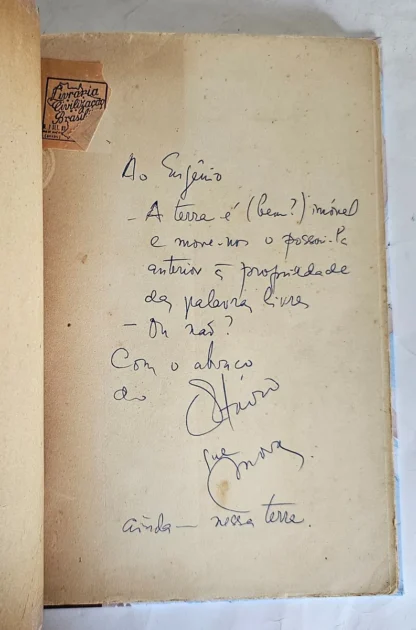 Livraria
Civilização
Brasil
Ao Eugênio
- A terra é (bem?) imóvel
e move-nos o possuí-la
anterior à propriedade
da palavra livre
- Ou não?
Com o abraço
do
que mora
ainda - nessa terra.